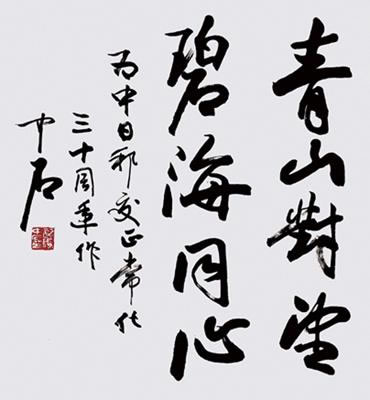 青山對望
碧海同心
为中日邦交正常化
三十周年作
中石